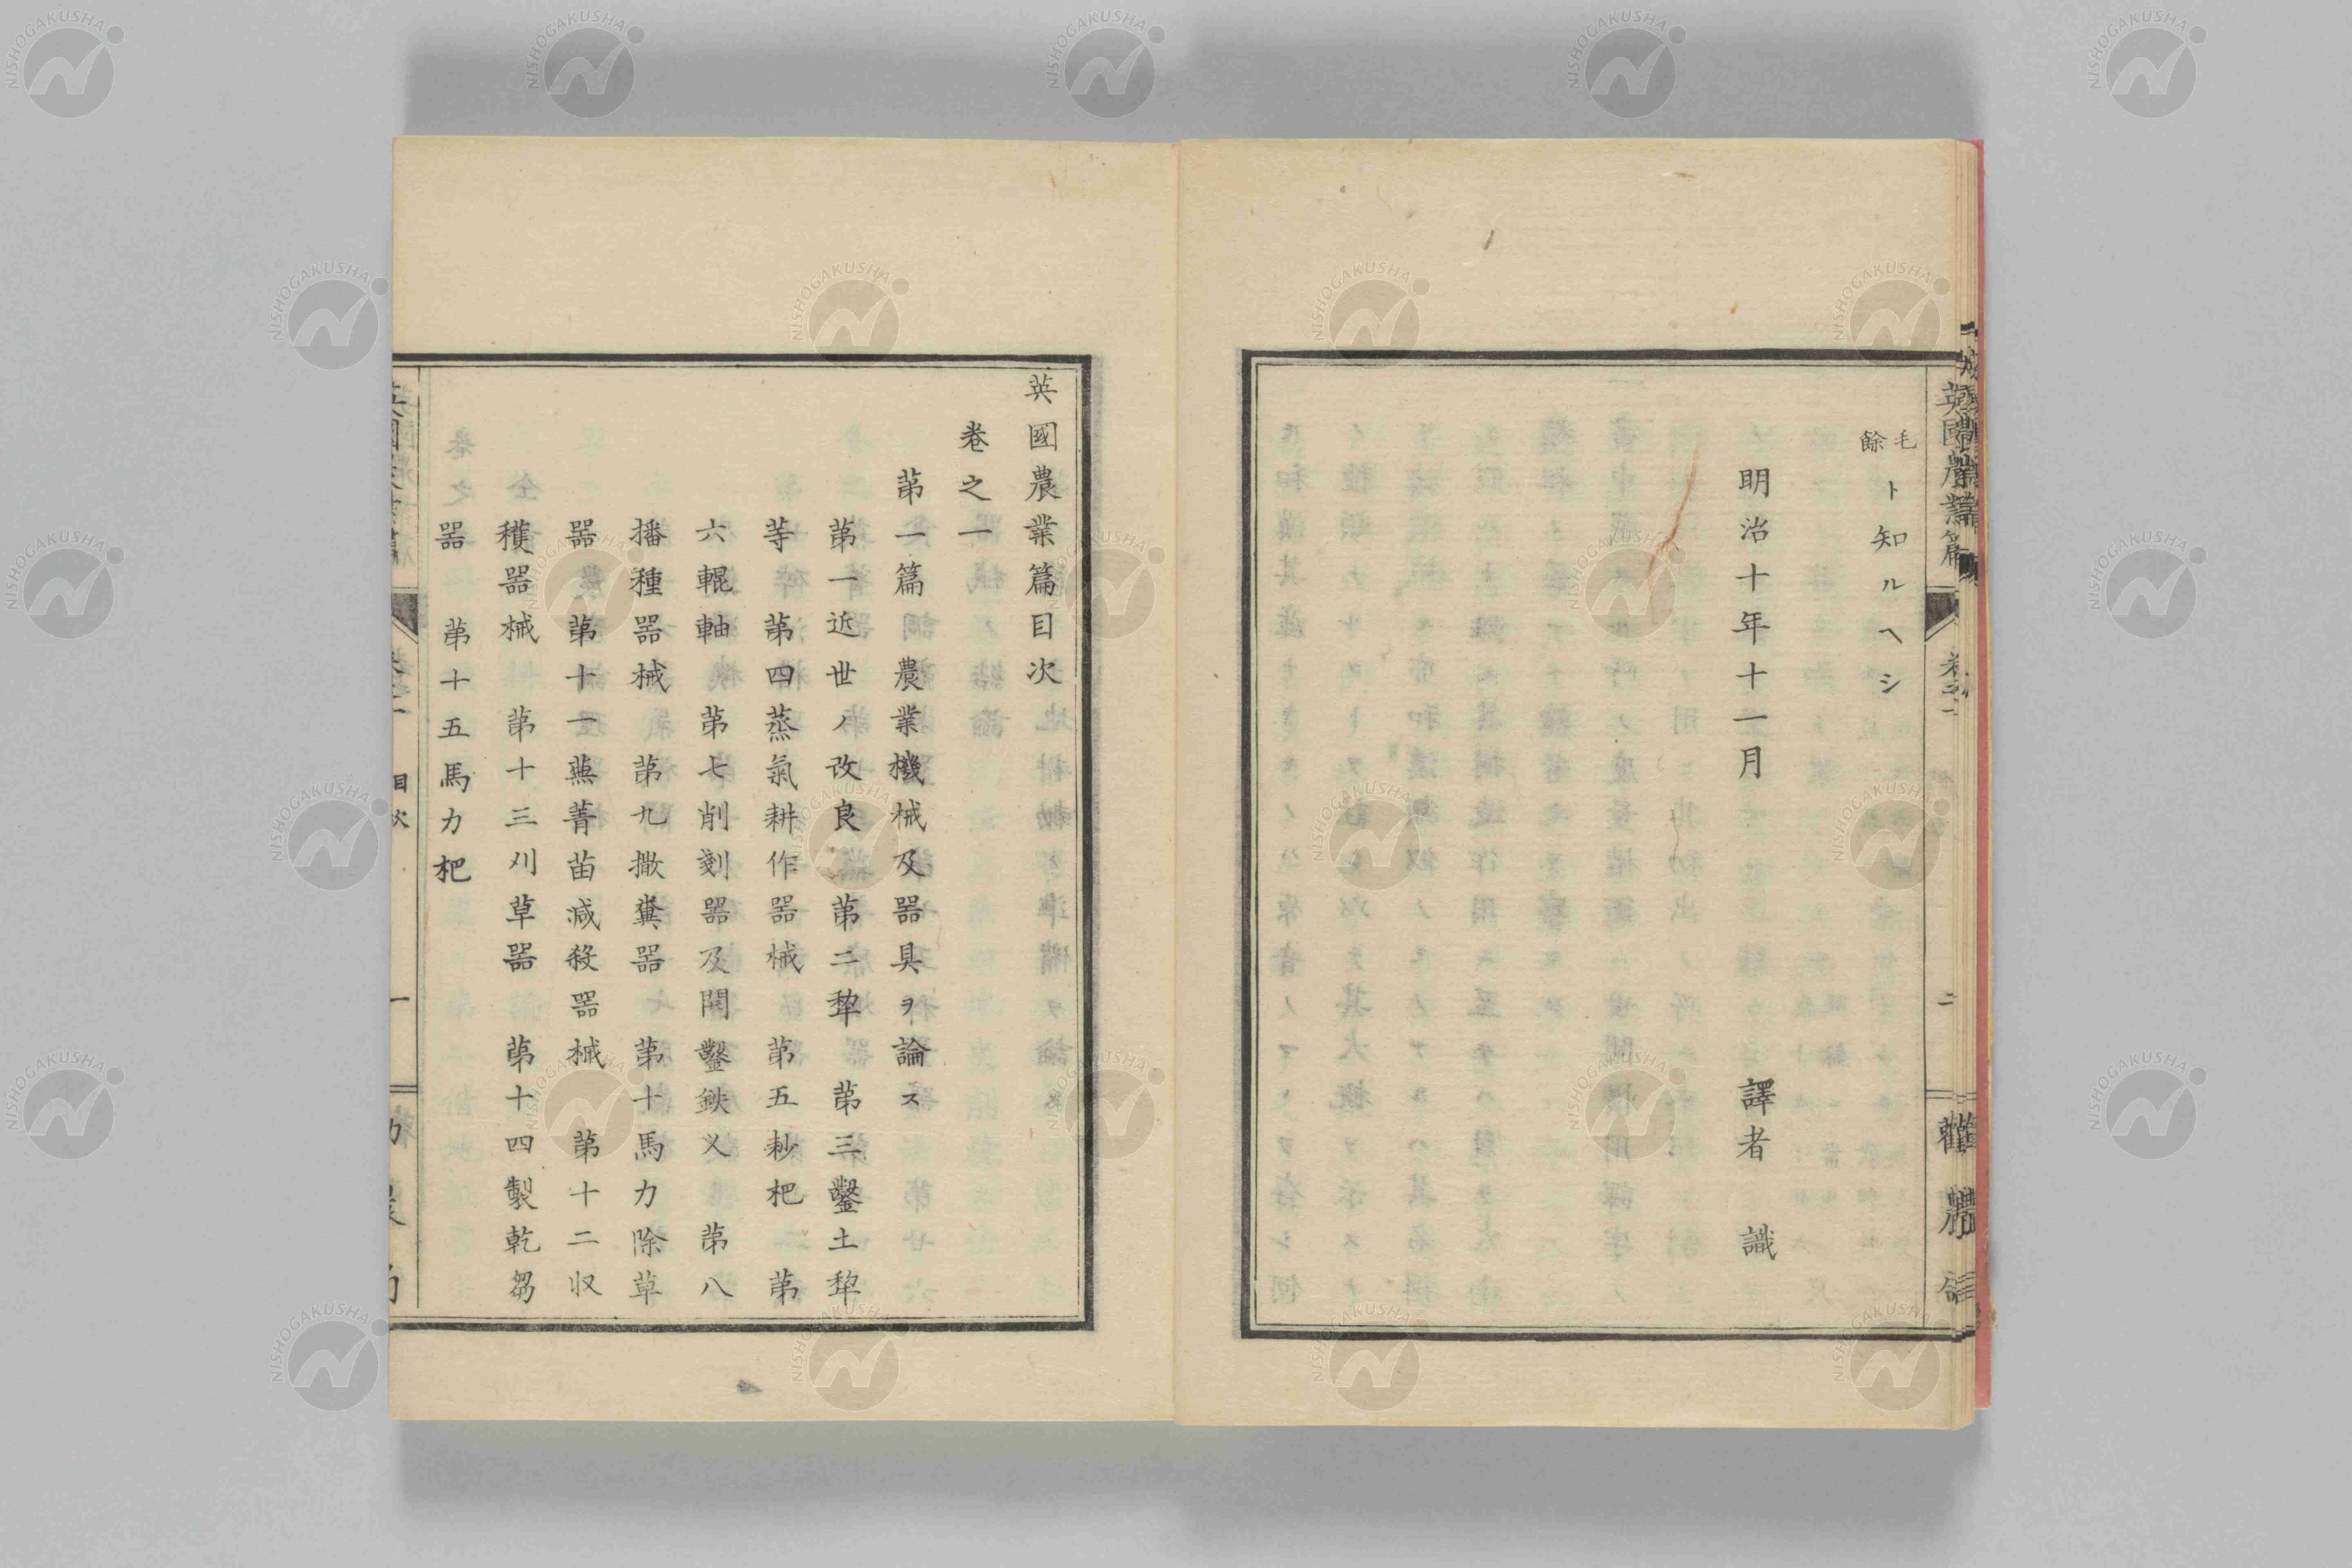 毛
餘
ト知ルヘシ
明治十年十一月 譯者 識
英國農業篇
二
英國農業篇目次
卷之一
苐一篇 農業機械及器具ヲ論ス
苐一近世ノ改良 苐二犂 苐三鑿土犂
等 苐四蒸氣耕作器械 苐五耖杷 苐
六輥軸 苐七削剗器及開鑿鉄乂 苐八
播種器械 苐九撒糞器 苐十馬力除草
器 苐十一蕪菁苗減殺器械 苐十二収
穫器械 苐十三刈草器 苐十四製乾芻
器 苐十五馬力杷
目次
一
NISHOGAKUSHA